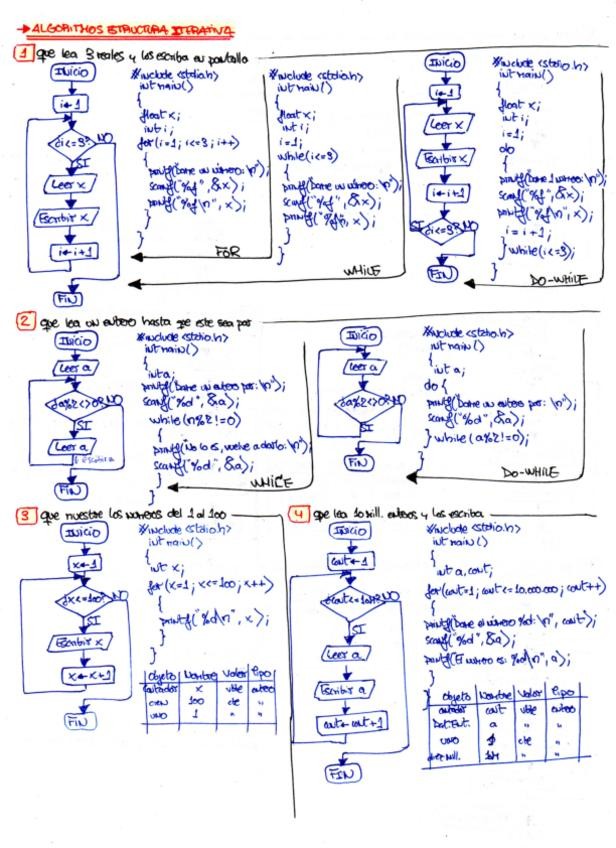 → ALGORITMOS ESTRUCTURA ITERATIVA
1 que lea 3 reales y los escriba en pantalla
INICIO
i←1
¿i<=3?
NO
SI
Leer x
Escribir x
i←i+1
FIN
#include <stdio.h>
int main()
{
float x;
int i;
for(i=1; i<=3; i++)
{
printf("Dame un número: \n");
scanf("%f", &x);
printf("%f\n", x);
}
}
FOR
#include <stdio.h>
int main()
{
float x;
int i;
i=1;
while(i<=3)
{
printf("Dame un número: \n");
scanf("%f", &x);
printf("%f\n", x);
}
}
WHILE
INICIO
i←1
Leer x
Escribir x
i←i+1
SI
¿i<=3?
NO
FIN
#include <stdio.h>
int main()
{
float x;
int i;
i=1;
do
{
printf("Dame 1 número: \n");
scanf("%f", &x);
printf("%f\n", x);
i=i+1;
} while(i<=3);
}
DO-WHILE
2 que lea un entero hasta que este sea par
INICIO
Leer a
¿a%2<>0?
NO
SI
Leer a
FIN
#include <stdio.h>
int main()
{
int a;
printf("Dame un entero par: \n");
scanf("%d", &a);
while (n%2!=0)
{
printf("No lo es, vuelve a darlo: \n");
scanf("%d", &a);
}
}
WHILE
INICIO
Leer a
¿a%2<>0?
NO
SI
FIN
#include <stdio.h>
int main()
{
int a;
do {
printf("Dame un entero par: \n");
scanf("%d", &a);
} while (a%2!=0);
}
DO-WHILE
3 que muestre los números del 1 al 100
INICIO
x←1
¿x<=100?
NO
SI
Escribir x
x←x+1
FIN
#include <stdio.h>
int main()
{
int x;
for(x=1; x<=100; x++)
{
printf("%d\n", x);
}
}
Objeto Nombre Valor Tipo
contador x vble entero
cien 100 cte "
uno 1 " "
4 que lea 10 mill. enteros y los escriba
INICIO
cont←1
NO
SI
Leer a
Escribir a
cont←cont+1
FIN
#include <stdio.h>
int main()
{
int a, cont;
for(cont=1; cont<=10.000.000; cont++)
{
printf("Dame el número %d: \n", cont);
scanf("%d", &a);
printf("El número es: %d\n", a);
}
}
Objeto Nombre Valor Tipo
contador cont vble entero
Dat.Ent. a " "
uno 1 cte "
diez mill. " "